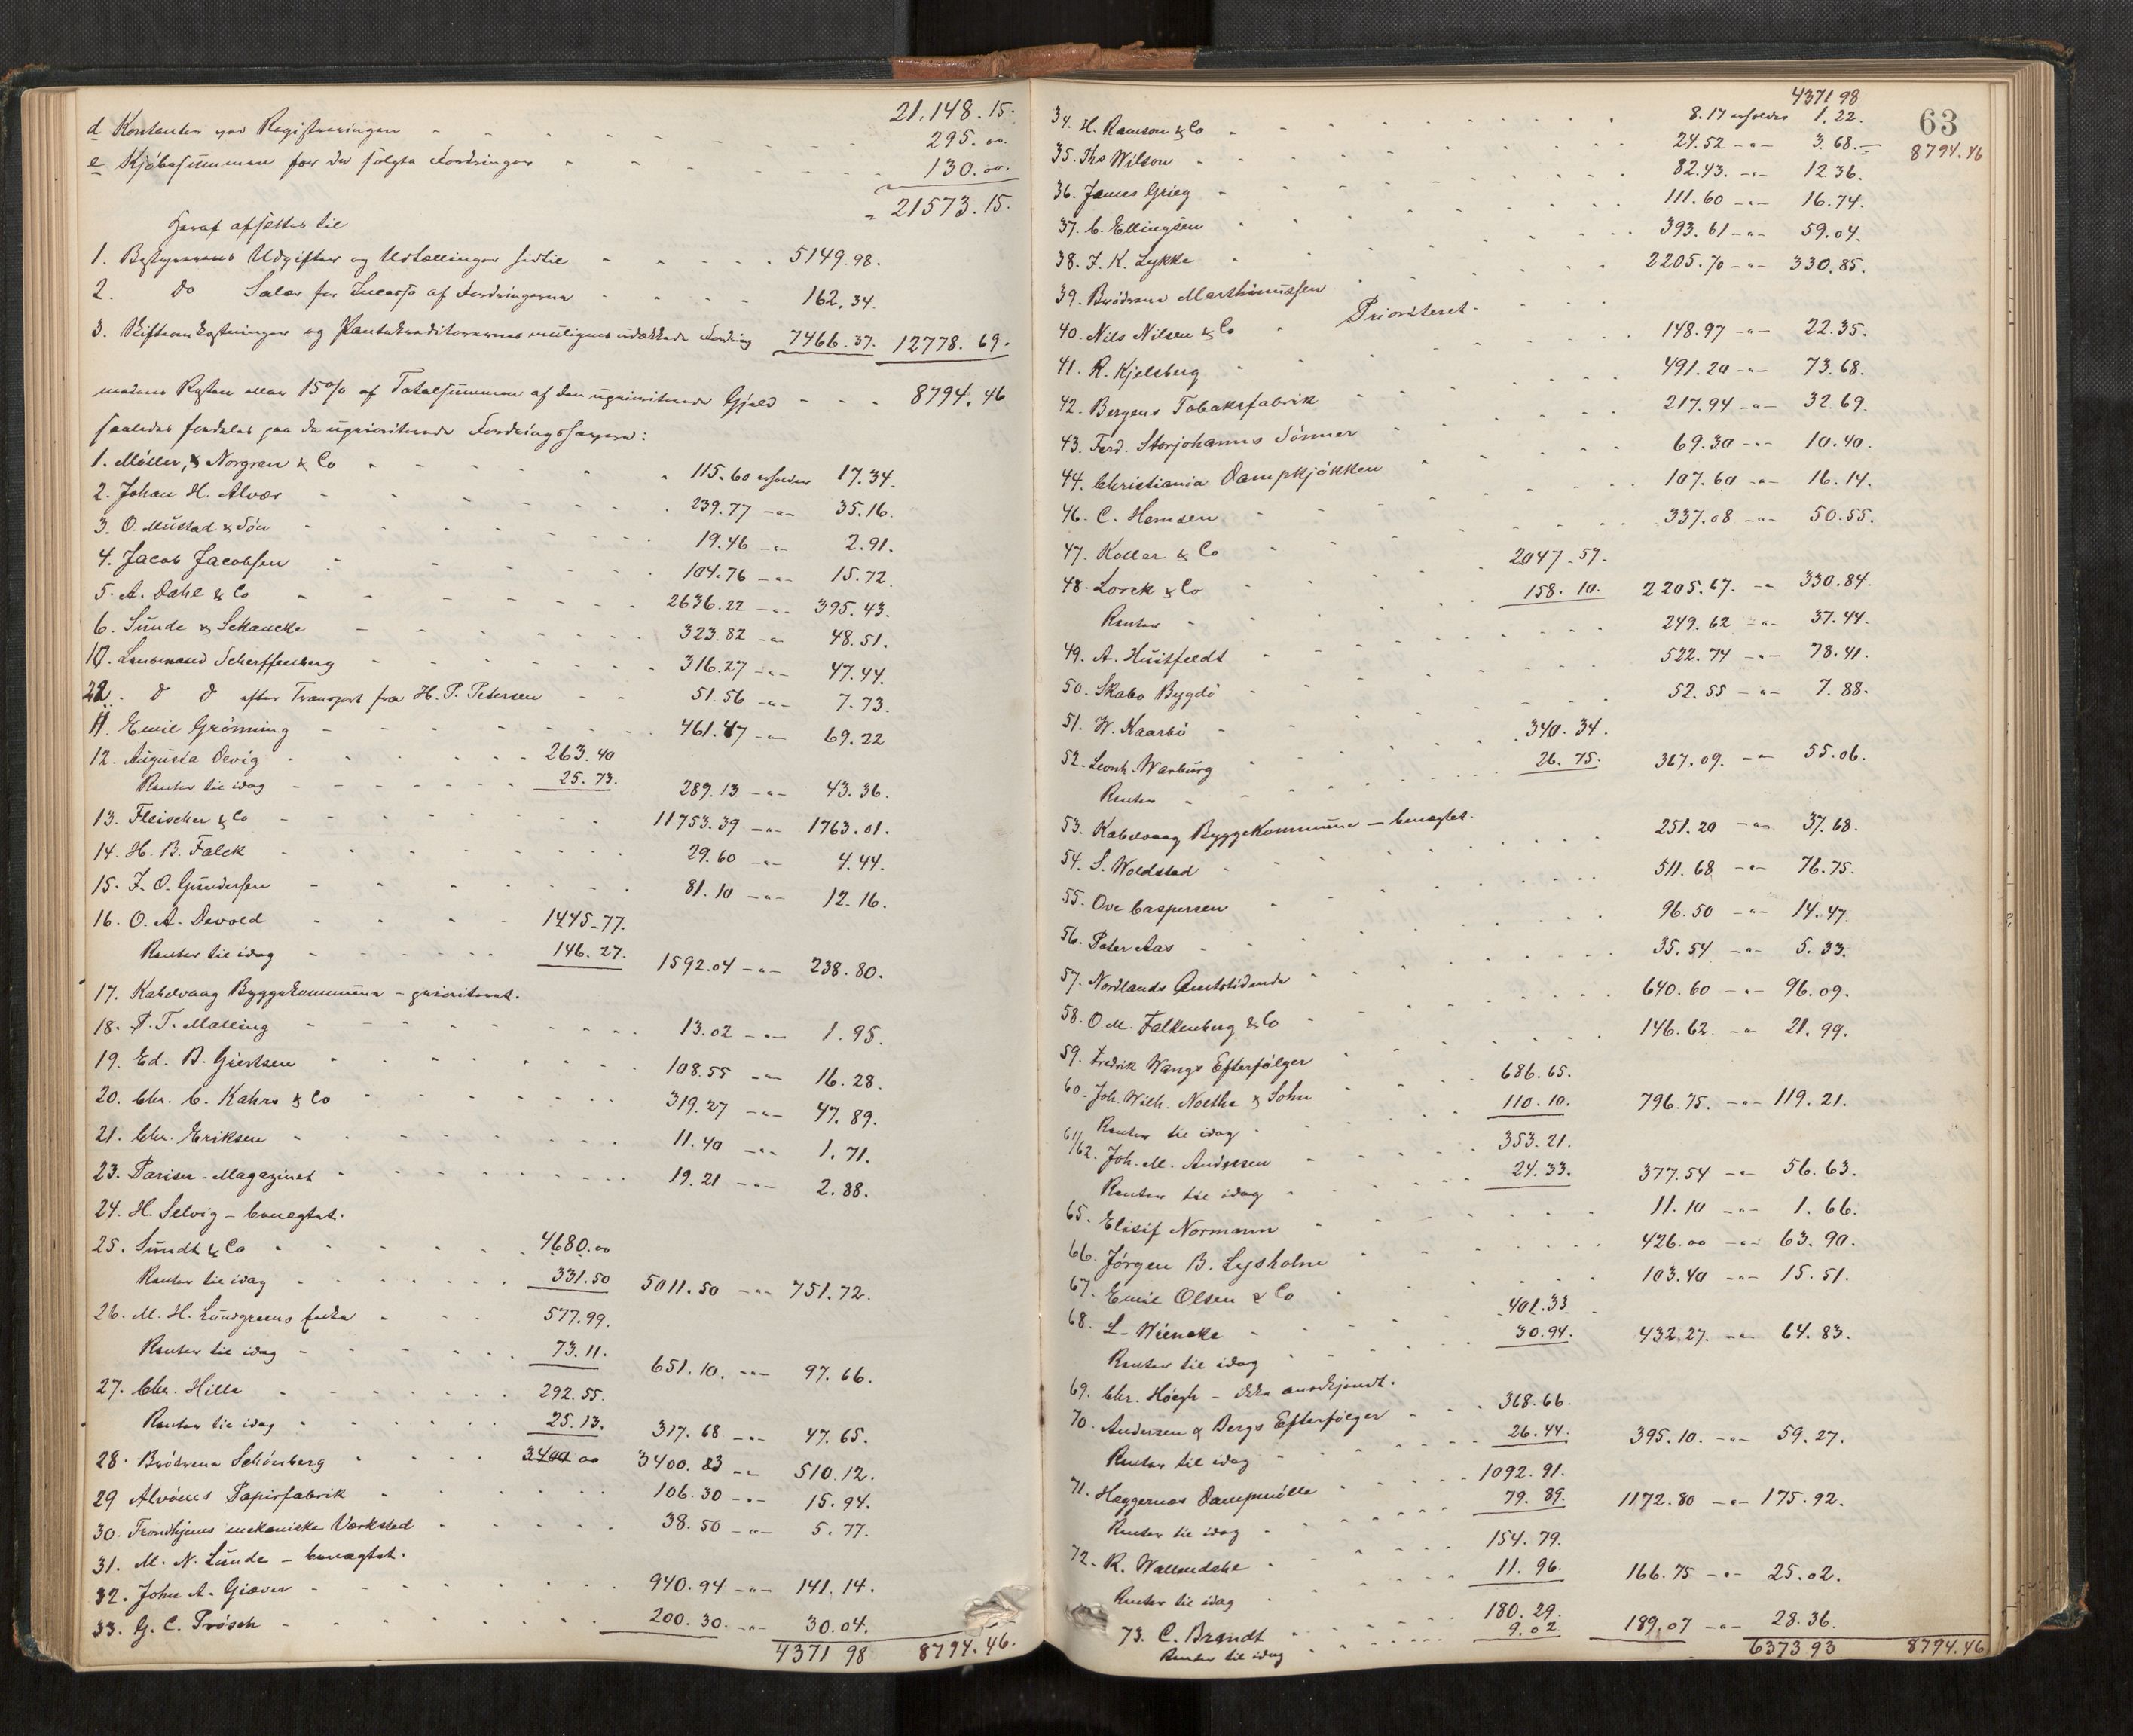 21,148.15.
d Kontanter ved Registreringen - - - 295.00.
e Kjöbesummen for de solgte Fordringer - - - 130.00.
= 21573.15.
Heraf afsættes til
1. Bestyrerens Udgifter og Udtællinger hidtil - - - 5149.98.
2. Do Salær for Incasso af Fordringerne - - - 162.34.
3. Skifteomkostninger og Pantekreditorernes muligens udækkede Fordring 7466.37. 12778.69.
medens Resten eller 15% af Totalsummen af den uprioriterede Gjæld - - - 8794.46
saaledes fordeles paa de uprioriterede Fordringshavere:
1. Möller, & Norgren & Co - - - 115.60 erholder 17.34.
2. Johan H. Alvær - - - 239.77 -"- 35.16.
3. O. Mustad & Sön - - - 19.46 -"- 2.91.
4. Jacob Jacobsen - - - 104.76 -"- 15.72.
5. A. Dahl & Co - - - 2636.22 -"- 395.43.
6. Sunde & Schancke - - - 323.82 -"- 48.51.
10. Lensmand Scharffenberg - - - 316.27 -"- 47.44.
22. do do efter Transport fra H. P. Petersen - - 51.56 -"- 7.73.
11. Emil Grönning - - - 461.47 -"- 69.22
12. Augusta Devig - - - 263.40
Renter til idag - - - 25.73. 289.13 -"- 43.36.
13. Fleischer & Co - - - 11753.39 -"- 1763.01.
14. H. B. Falck - - - 29.60 -"- 4.44.
15. J. O. Gundersen - - - 81.10 -"- 12.16.
16. O. A. Devold - - - 1445.77.
Renter til idag - - - 146.27. 1592.04 -"- 238.80.
17. Kabelvaag Byggekommune - prioriteret.
18. P. T. Malling - - - 13.02 -"- 1.95.
19. Ed. B. Giertsen - - - 108.55 -"- 16.28.
20. Chr. C. Kahrs & Co - - - 319.27 -"- 47.89.
21. Chr. Eriksen - - - 11.40 -"- 1.71.
23. Pariser-Magazinet - - - 19.21 -"- 2.88.
24. H. Selvig - benegtet.
25. Sundt & Co - - - 4680.00
Renter til idag - - - 331.50 5011.50 -"- 751.72.
26. M. H. Lundgreens Enke - - - 577.99.
Renter til idag - - - 73.11. 651.10. -"- 97.66.
27. Chr. Hille - - - 292.55.
Renter til idag - - - 25.13. 317.68 -"- 47.65.
28. Brödrene Schönberg - - - 3400 00 3400.83 -"- 510.12.
29 Alvöens Papirfabrik - - - 106.30 -"- 15.94.
30. Trondhjems mekaniske Værksted - - - 38.50 -"- 5.77.
31. M. N. Lunde - benægtet.
32. John A. Giæver - - - 940.94 -"- 141.14.
33. G. C. Prösch - - - 200.30. -"- 30.04.
4371 98 8794.46.
63
4371 98 8794.46
34. H. Ramson & Co - - - 8.17 erholder 1.22.
35. Ths Wilson - - - 24.52 -"- 3.68.
36. James Grieg - - - 82.43. -"- 12 36.
37. C. Ellingsen - - - 111.60 -"- 16.74.
38. J. K. Lykke - - - 393.61 -"- 59.04.
39. Brödrene Marthinussen - - - 2205.70 -"- 330.85.
40. Nils Nilsen & Co - Prioriteret.
41. R. Kjelsberg - - - 148.97 -"- 22.35.
42. Bergens Tobaksfabrik - - - 491.20 -"- 73.68.
43. Ferd. Storjohanns Sönner - - - 217.94 -"- 32.69.
44. Christiania Dampkjökken - - - 69.30 -"- 10.40.
46. C. Hemsen - - - 107.60 -"- 16.14.
47. Koller & Co - - - 337.08 -"- 50.55.
48. Lorck & Co - - - 2047.57.
Renter - - - 158.10. 2205.67. -"- 330.84.
49. A. Huitfeldt - - - 249.62 -"- 37.44.
50. Skabo Bygdö - - - 522.74 -"- 78.41.
51. W. Kaarbö - - - 52.55 -"- 7.88.
52. Leonh. Warburg - - - 340.34.
Renter - - - 26.75. 367.09. -"- 55.06.
53. Kabelvaag Byggekommune - benægtet.
54. S. Woldstad - - - 251.20 -"- 37.68.
55. Ove Caspersen - - - 511.68 -"- 76.75.
56. Peter Aas - - - 96.50 -"- 14.47.
57. Nordlands Amtstidende - - - 35.54 -"- 5.33.
58. O. M. Falkenberg & Co - - - 640.60 -"- 96.09.
59. Fredrik Wangs Efterfölger - - - 146.62 -"- 21.99.
60. Joh. Wilh. Nolthe & Sohn - - - 686.65.
Renter til idag - - - 110.10. 796.75. -"- 119.21.
61/62. Joh. M. Andresen - - - 353.21.
Renter til idag - - - 24.33. 377.54 -"- 56.63.
65. Elisif Normann - - - 11.10 -"- 1.66.
66. Jörgen B. Lysholm - - - 426.00 -"- 63.90.
67. Emil Olsen & Co - - - 103.40 -"- 15.51.
68. L. Wiencke - - - 401.33
Renter til idag - - - 30.94. 432.27. -"- 64.83.
69. Chr. Höegh - ikke anerkjendt.
70. Andersen & Bergs Efterfölger - - - 368.66.
Renter til idag - - - 26.44. 395.10. -"- 59.27.
71. Heggernæs Dampmölle - - - 1092.91.
Renter til idag - - - 79.89. 1172.80 -"- 175.92.
72. R. Wallendahl - - - 154.79.
Renter til idag - - - 11.96. 166.75 -"- 25.02.
73. C. Brandt - - - 180.29.
Renter til idag - - - 9.02 189.07 -"- 28.36.
6373 93 8794.46